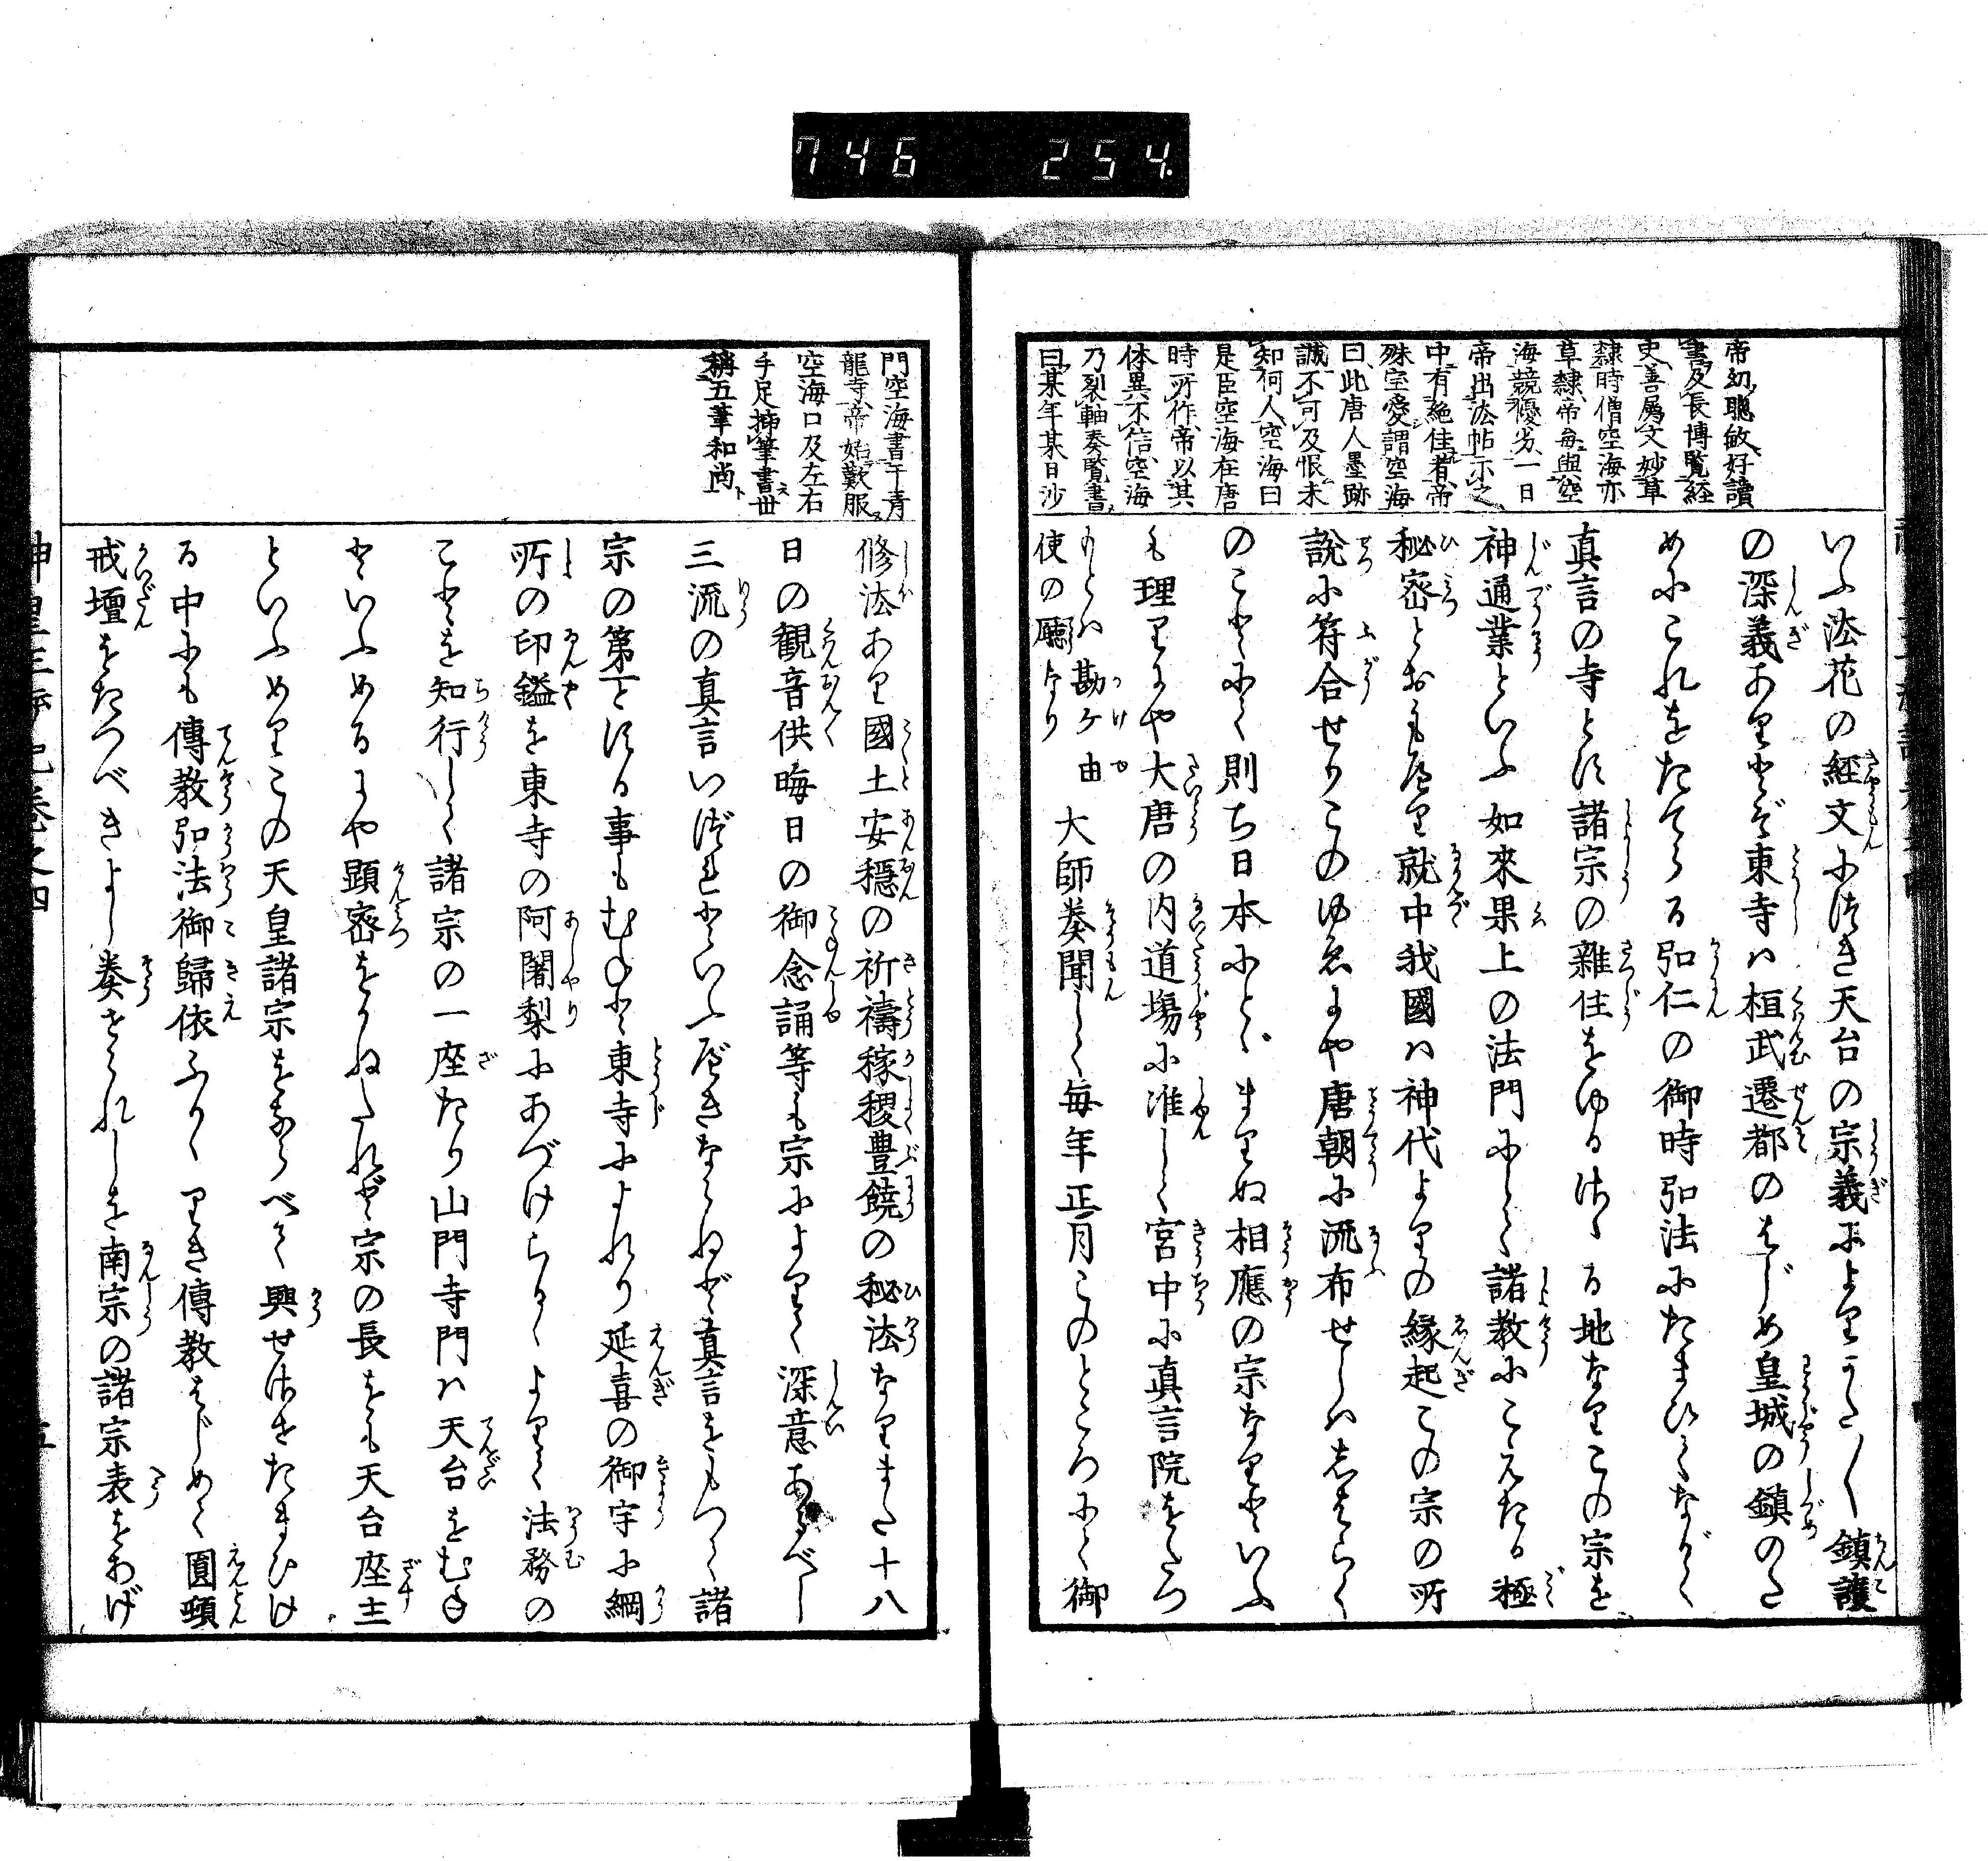 746 254.
帝幼聰敏好讀
書及長博覧経
史善属文妙草
隸時僧空海亦
草隸帝毎與空
海競優劣一日
帝出法帖示之
中有絶佳者帝
殊宝愛謂空海
曰此唐人墨跡
誠不可及恨未
知何人空海曰
是臣空海在唐
時所作帝以其
体異不信空海
乃裂軸奏覧書
曰某年某日沙
いふ法花の経文につき天台の宗義によりかた〳〵鎮護
の深義ありとぞ東寺ハ桓武遷都のはじめ皇城の鎮のた
めにこれをたてらる弘仁の御時弘法にたまひてながく
真言の寺とす諸宗の雜住をゆるさゝる地なりこの宗を
神通業といふ如來果上の法門にして諸教にこえたる極
秘密とおもへり就中我國ハ神代よりの縁起この宗の所
説に符合せりこのゆゑにや唐朝に流布せしハしばらく
のことにて則ち日本にとゞまりぬ相應の宗なりといふ
も理りにや大唐の内道塲に准して宮中に真言院をたつ
もとハ勘ケ由
使の廳なり
大師奏聞して毎年正月このところにて御
門空海書于青
龍寺帝始歎服
空海口及左右
手足揷筆書世
稱五筆和尚
修法あり國土安穩の祈禱稼稷豊饒の秘法なりまた十八
日の観音供晦日の御念誦等も宗によりて深意あるべし
三流の真言いづれといふべきならねど真言をもつて諸
宗の第一とする事もむねと東寺によれり延喜の御宇に綱
所の印鎰を東寺の阿闍梨にあづけらるよりて法務の
ことを知行して諸宗の一座たり山門寺門ハ天台をむね
といふめるにや顕密をかぬたれど宗の長をも天台座主
といふめりこの天皇諸宗をならべて興せさせたまひけ
る中にも傳教弘法御歸依ふかゝりき傳教はじめて圓頓
戒壇をたつべきよし奏せられしを南宗の諸宗表をあげ
神皇正統記巻之四